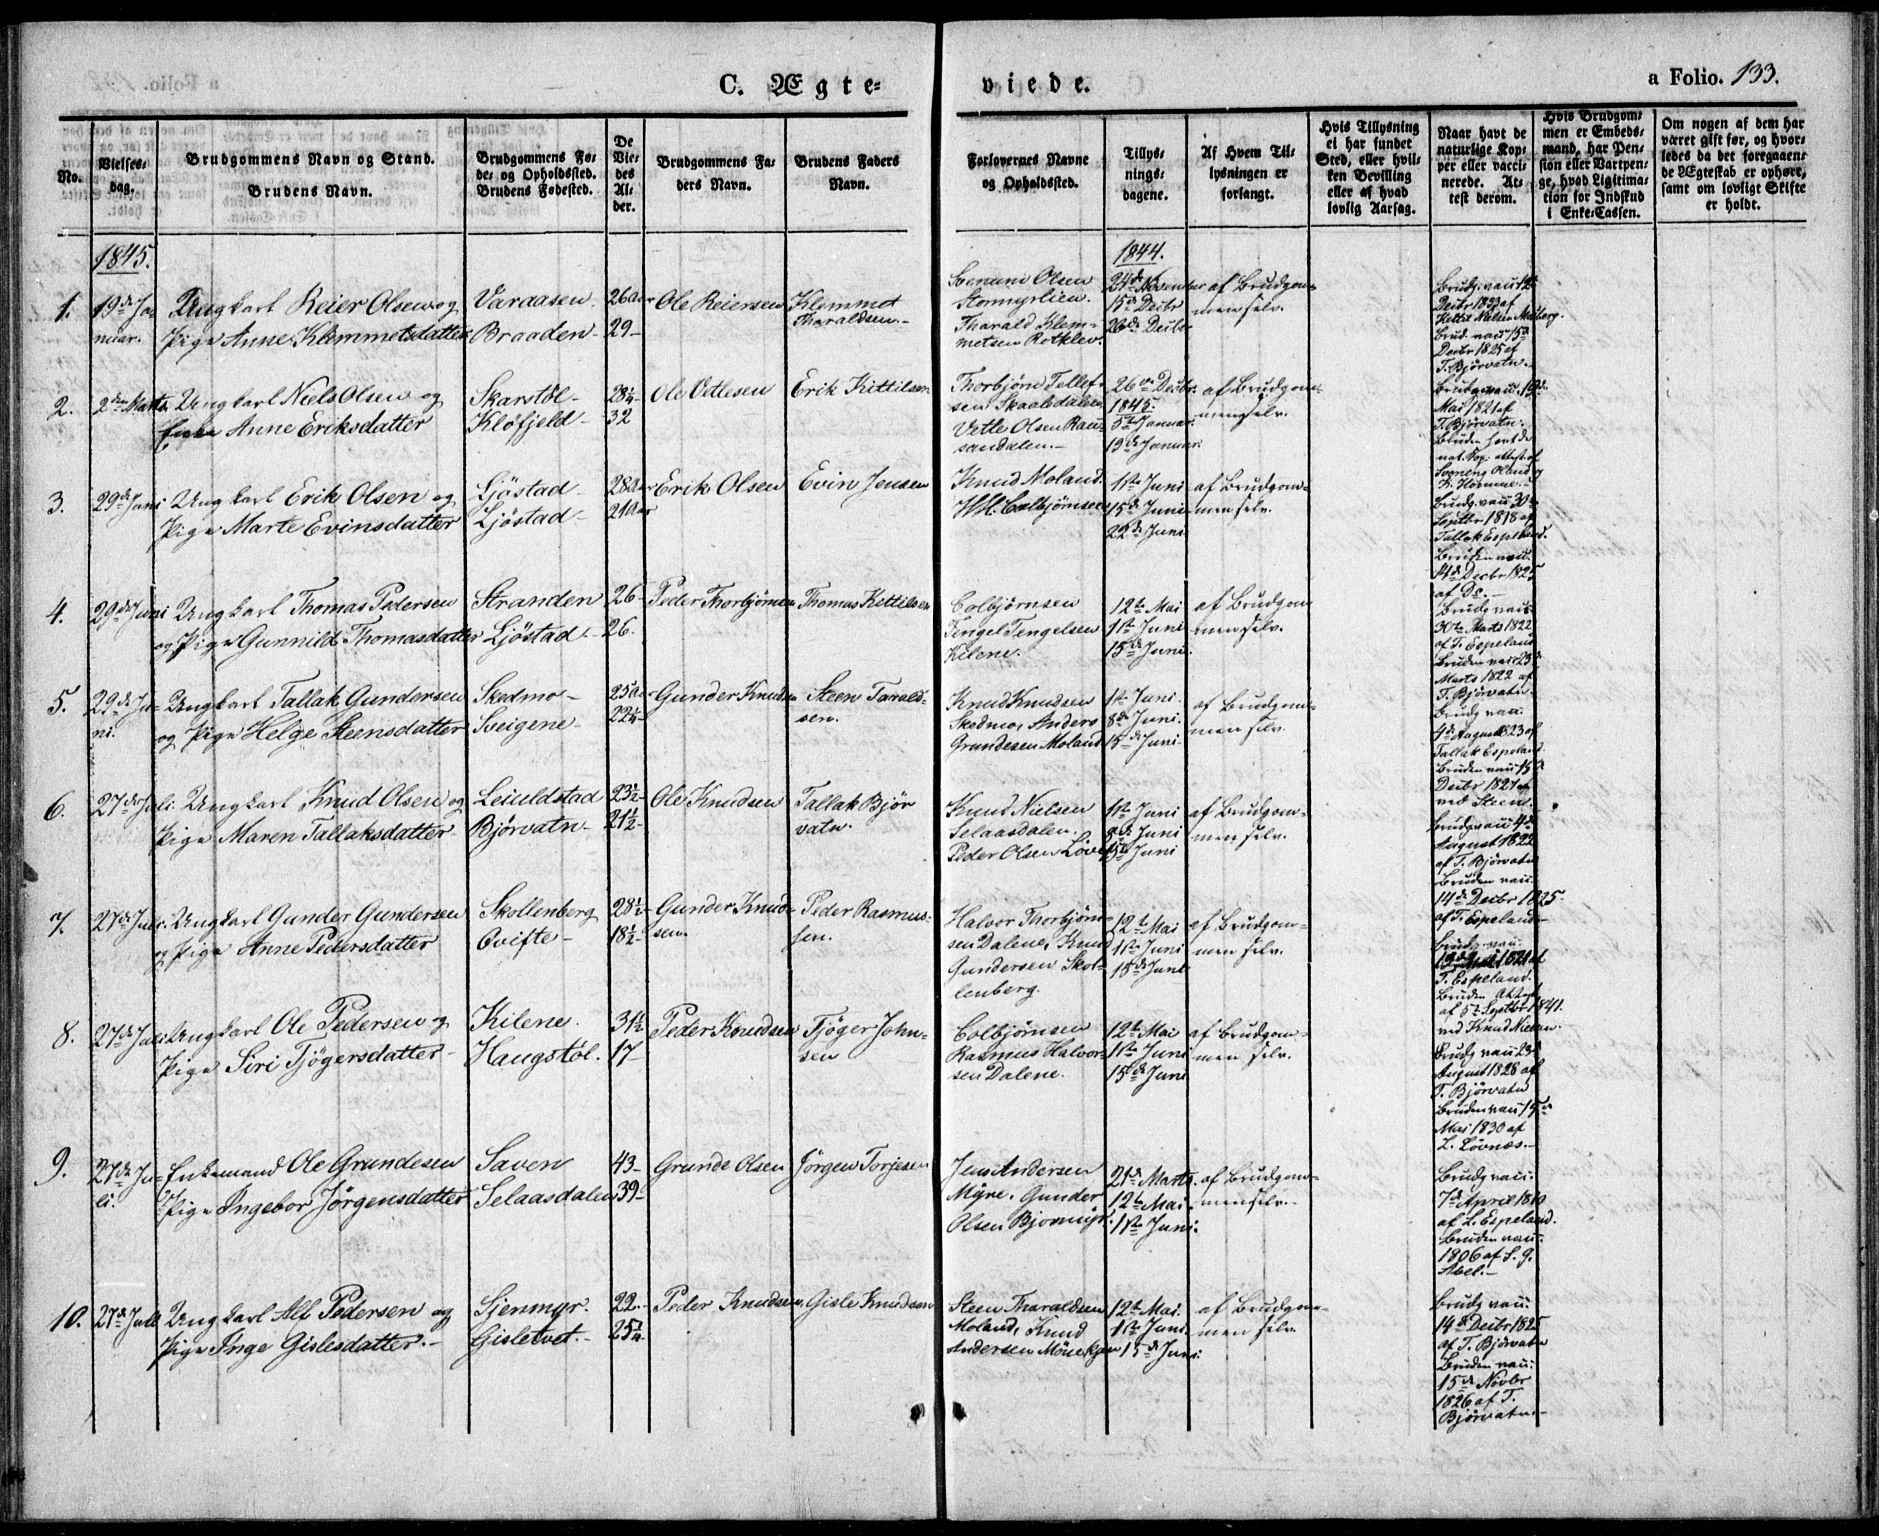 C. Ægte=
viede.
a Folio. 133.
No.
Vielses=
dag.
Brudgommens Navn og Stand.
Brudens Navn.
Brudgommens Fø=
de= og Opholdssted.
Brudens Fødested.
De
Vie=
des
Al=
der.
Brudgommens Fa=
ders Navn.
Brudens Faders
Navn.
Forlovernes Navne
og Opholdssted.
Tillys=
nings=
dagene.
Af Hvem Til=
lysningen er
forlangt.
Hvis Tillysning
ei har fundet
Sted, eller hvil=
ken Bevilling
eller af hvad
lovlig Aarsag.
Naar havt de
naturlige Kop=
per eller vacci=
nerede. At=
test derom.
Hvis Brudgom=
men er Embeds=
mand, har Pen=
sion eller Vartpen=
ge, hvad Ligitima=
tion for Indskud
i Enke=Cassen.
Om nogen af dem har
været gift før, og hvor=
ledes da det foregaaen=
de Ægteskab er ophørt,
samt om lovligt Skifte
er holdt.
1845.
1844.
1.
19de Ja
nuar.
Ungkarl Reier Olsen og
Pige Anne Klemmetsdatter
Varaasen
Braaden
26 Aar
29
Ole Reiersen
Klemmet
Tharaldsen
Olsen
Stormyrlien.
Tharald Klem=
metsen Rotklev.
24de November
15de Decbr
26de Decbr
af Brudgom=
men selv.
Brudg. vacc. 12te
Decbr 1832 af
Kittil Nielsen
Brud. vacc. 15de
Decbr 1825 af
T. Bjørvatn.
2.
2den Marts
Ungkarl Niels Olsen og
Pige Anne Eriksdatter
Skarstøl
Kløfjeld
28¼
32
Ole Vetlesen
Erik Kittilsen
Thorbjørn Tellef=
sen Skaaledalen
Vetle Olsen Rau=
sandalen.
26de Decbr.
1845.
5te Januar
19de Januar.
af Brudgom=
men selv.
Brudg. vacc. 19de
Mai 1821 af
T. Bjørvatn.
Bruden havt de
nat. Kop. attest af
Svenung Oland og
K. Homme.
3.
29de Juni
Ungkarl Erik Olsen og
Pige Marte Evinsdatter
Ljøstad
Ljøstad
28 Aar
21 Aar
Erik Olsen
Evin Jensen
Knud Moland.
Colbjørnsen
1ste Juni
15de Juni
22de Juni
af Brudgom=
men selv.
Brudg. vacc. 30te
Septbr 1818 af
Tallak Espeland.
Bruden vacc.
14de Decbr 1825
af Do.
4.
29de Juni
Ungkarl Thomas Pedersen
og Pige Gunnild Thomasdatter
Stranden
Ljøstad
26
26.
Peder Thorbjørnsen
Thomas Kittilsen
Colbjørnsen
Tengel Tengelsen
Kilene.
12te Mai
1ste Juni
15de Juni.
af Brudgom
men selv.
Brudg. vacc.
30te Marts 1822
af T. Espeland
Bruden vacc. 23de
Marts 1822 af
T. Bjørvatn
5.
29de Ju=
ni.
Ungkarl Tallak Gundersen
og Pige Helge Steensdatter
Skedmo
Sveigene
25 Aar
22¼
Gunder Knudsen
Steen Tarald=
sen.
Knud Knudsen
Skedmo, Anders
Grundesen Moland
1ste Juni.
8de Juni.
15de Juni
af Brudgom=
men selv.
Brudg. vacc.
4de August 1823 af
Tallak Espeland.
Bruden vacc. 15de
Decbr 1827 af
ved Steen.
6.
27de Juli
Ungkarl Knud Olsen og
Pige Maren Tallaksdatter
Leiuldstad
Bjørvatn
23½
21½
Ole Knudsen
Tallak Bjør
vatn.
Knud Nielsen
Selaasdalen.
Peder Olsen
1ste Juni
8de Juni
15de Juni
af Brudgom=
men selv.
Brudg. vacc. 4de
August 1822
af T. Bjørvatn
Bruden vacc.
14de Decbr 1825
af T. Espeland
7.
27de Juli
Ungkarl Gunder Gundersen
og Pige Anne Pedersdatter
Skollenberg
Ovifte
28½
18½
Gunder Knud=
sen.
Peder Rasmus=
sen.
Halvor Thorbjørn=
sen Dalene, Knud
Gundersen Skol=
lenberg.
12te Mai
1ste Juni
15de Juni
af Brudgom=
men selv.
Brudg. vacc.
1821 af
T. Espeland.
Bruden Attest
af 5te Septbr 1841.
ved Knud Nielsen.
8.
27de Juli
Ungkarl Ole Pedersen og
Pige Siri Tjøgersdatter
Kilene.
Haugstøl.
31½
17
Peder Knudsen
Tjøger John=
sen
Colbjørnsen
Rasmus Halvor=
sen Dalene.
12te Mai
1ste Juni
15de Juni
af Brudgom=
men selv.
Brudg. vacc. 23de
August 1828 af
T. Bjørvatn
Bruden vacc. 15de
Mai 1830 af
L. Løvnæs.
9.
27de Ju=
li.
Enkemand Ole Grundesen
Pige Ingebor Jørgensdatter
Saven
Selaasdalen
43
39
Grunde Olsen
Jørgen Torjesen
Jens Andersen
Myre. Gunder
Olsen Bjormyr.
21de Marts
12te Mai.
1ste Juni.
af Brudgom=
men selv.
Brudg. vacc.
7de April 1810
af L. Espeland.
Bruden vacc.
1806 af S. G.
Abel.
10.
27de Juli
Ungkarl Alf Pedersen og
Pige Inge Gislesdatter.
Sjenmyr.
Gisletvet.
22.
25¼
Peder Knudsen
Gisle Knudsen
Steen Tharaldsen
Moland, Knud
Andersen
12te Mai.
1ste Juni.
15de Juni.
af Brudgom=
men selv.
Brudg. vacc.
14de Decbr 1825
af T. Bjørvatn
Bruden vacc.
15de Novbr
1826 af T.
Bjørvatn.